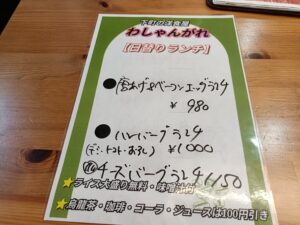 下町の洋食屋
わしゃんがれ
【日替りランチ】
●唐あげ&ベーコンエッグ
¥980
●ハンバーグ
(デミ・トマト・おろし) ¥1000
チーズバーグ 1150
★ライス大盛り無料・味噌汁付
★烏龍茶・珈琲・コーラ・ジュースは100円引き